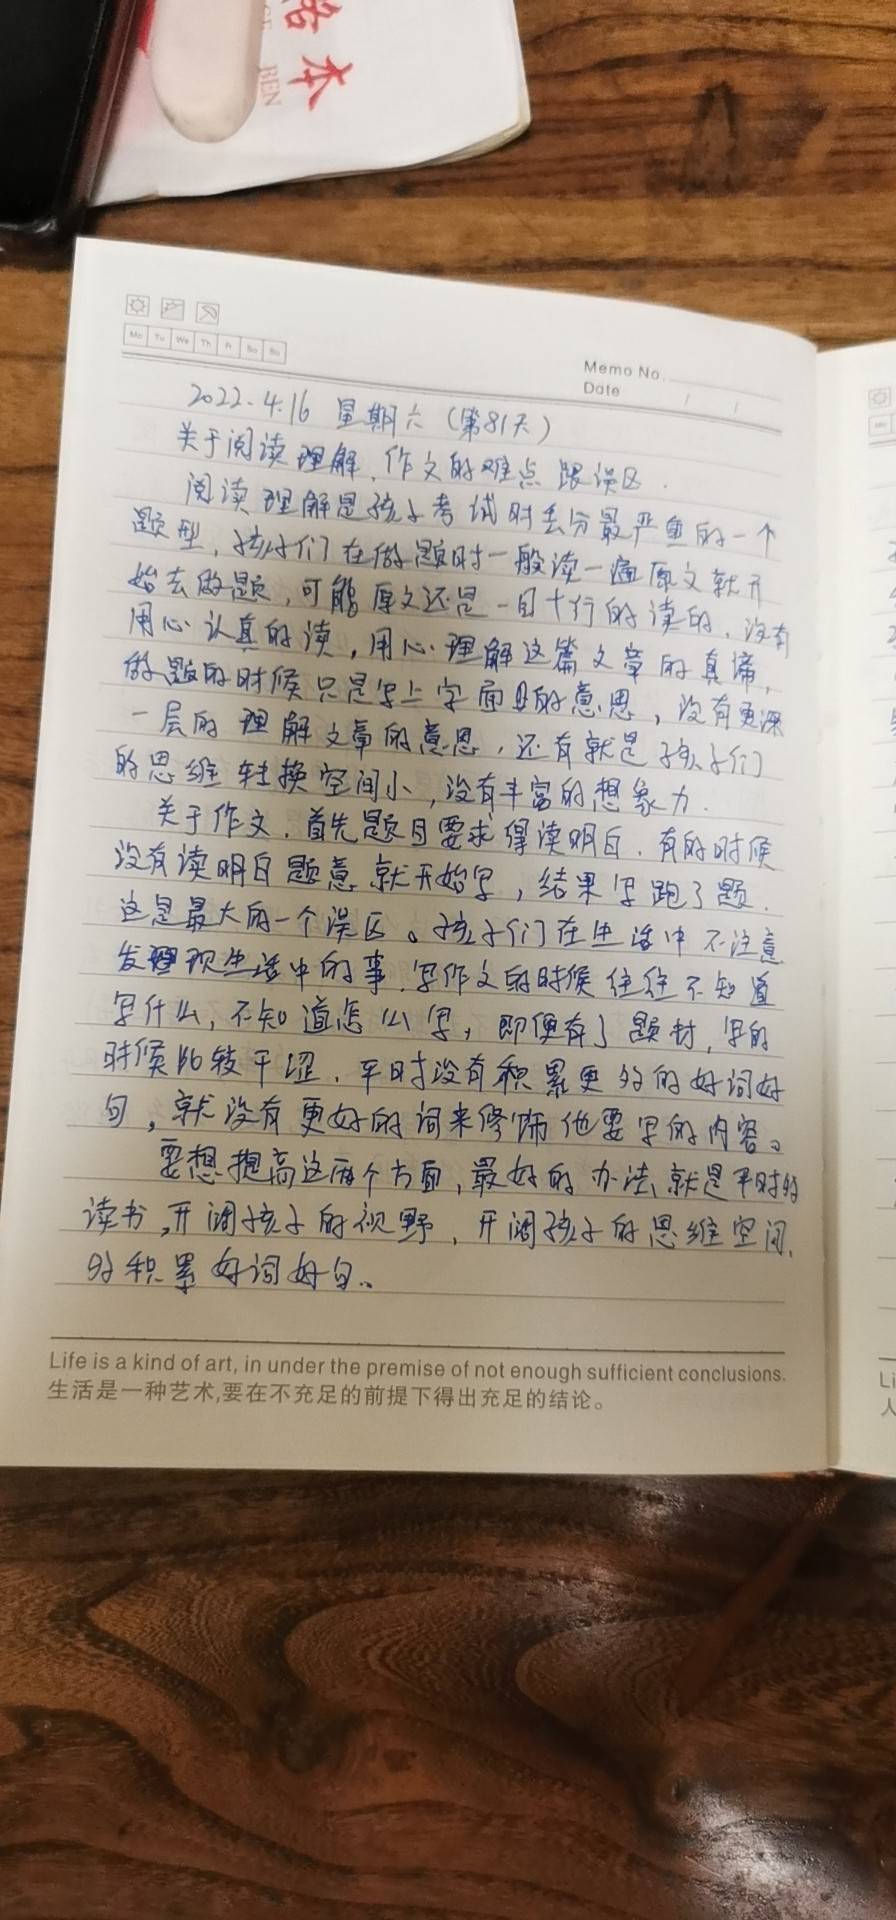 本
BEN
Mo Tu We Th Fr Sa Su
Memo No.
Date / /
2022.4.16 星期六（第81天）
关于阅读理解、作文的难点跟误区.
阅读理解是孩子考试时丢分最严重的一个
题型，孩子们在做题时一般读一遍原文就开
始去做题，可能原文还是一目十行的读的，没有
用心认真的读，用心理解这篇文章的真谛，
做题的时候只是写上字面的意思，没有更深
一层的理解文章的意思，还有就是孩子们
的思维转换空间小，没有丰富的想象力.
关于作文，首先题目要求得读明白，有的时候
没有读明白题意就开始写，结果写跑了题.
这是最大的一个误区。孩子们在生活中不注意
发现生活中的事，写作文的时候往往不知道
写什么，不知道怎么写，即便有了题材，写的
时候比较干涩，平时没有积累更多的好词好
句，就没有更好的词来修饰他要写的内容。
要想提高这两个方面，最好的办法就是平时多
读书，开阔孩子的视野，开阔孩子的思维空间，
多积累好词好句。
Life is a kind of art, in under the premise of not enough sufficient conclusions.
生活是一种艺术,要在不充足的前提下得出充足的结论。
Li
人